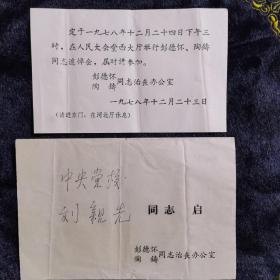 定于一九七八年十二月二十四日下午三
时，在人民大会堂西大厅举行彭德怀、陶铸
同志追悼会，届时请参加。
彭德怀
陶铸 同志治丧办公室
一九七八年十二月二十三日
（请进东门，在河北厅休息）
中央党校
刘 先 同志 启
彭德怀
陶铸 同志治丧办公室